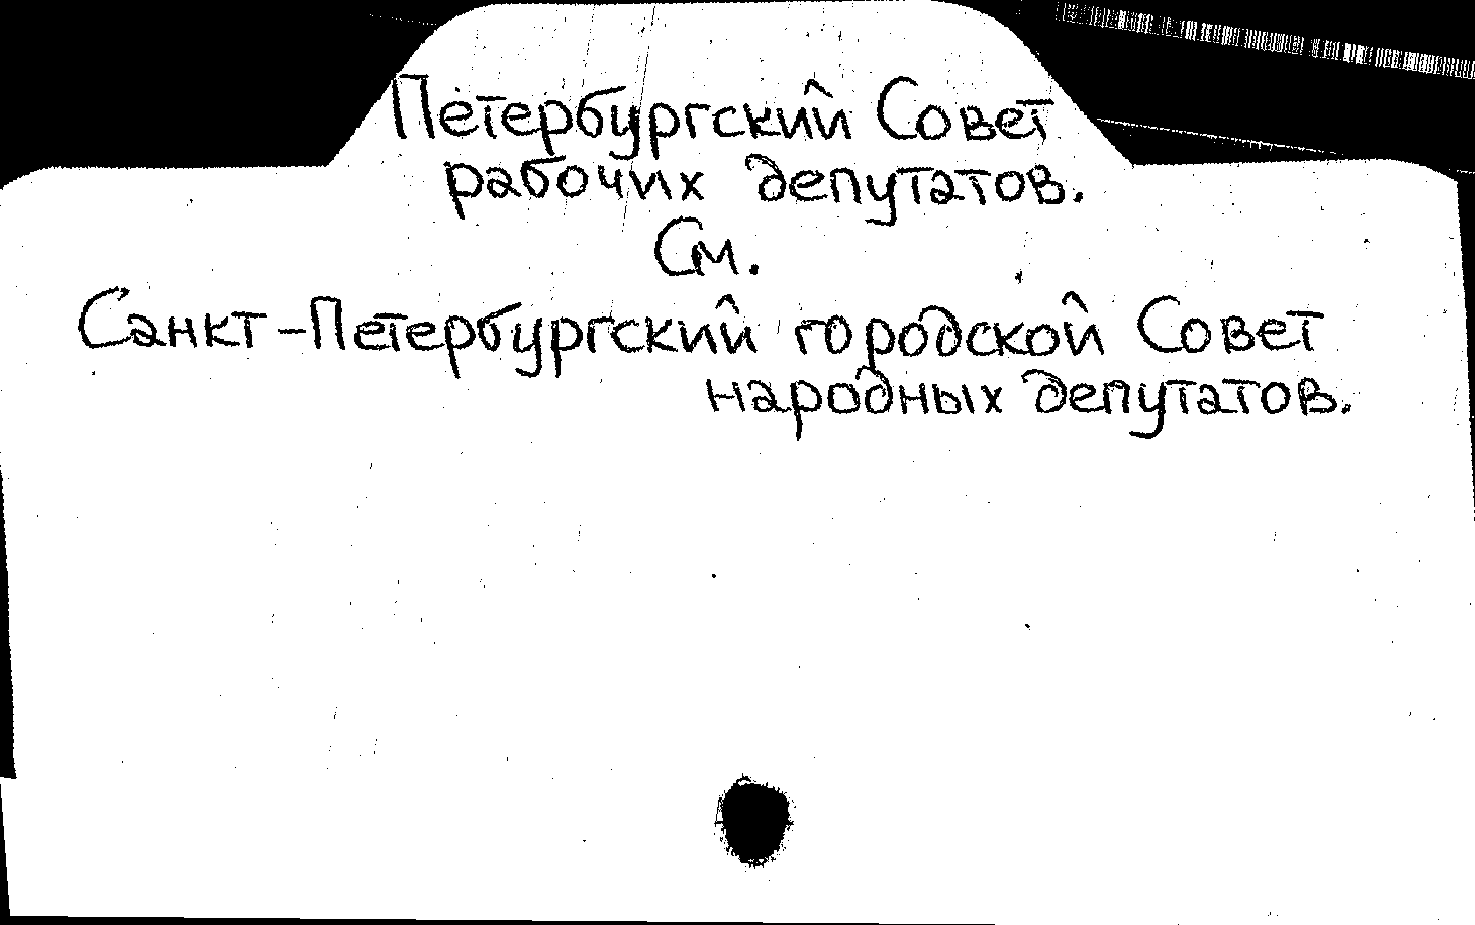 Петербургский Совет
рабочих депутатов.
См.
Санкт-Петербургский городской Совет
народных депутатов.